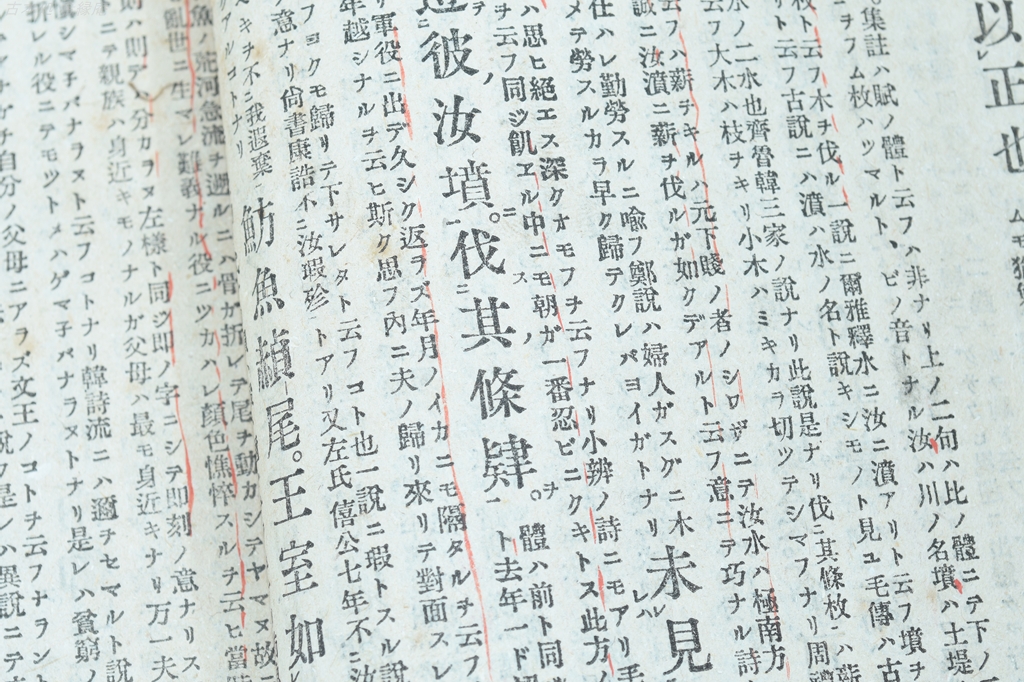 以、正也
集註ハ賦ノ體ト云フハ非ナリ上ノ二句ハ比ノ體ニテ下ノ
ヲフム枚ハツマルト、ビノ音トナル汝ハ川ノ名墳ハ土堤
枚ト云フ木ヲ伐ル一說ニ爾雅釋水ニ汝ニ濆アリト云フ墳ヲ
リト云フ古說ニハ濆ハ水ノ名ト說キシモノト見ユ毛傳ハ古
水ノ二水也齊魯韓三家ノ說ナリ此說是ナリ伐ニ其條枚ニハ薪
云フ大木ハ枝ヲキリ小木ハミキカラ切ツテシマフナリ周
云フハ薪ヲキルハ元下賤ノ者ノシワザニテ汝水ハ極南方
誠ニ汝濆ニ薪ヲ伐ルガ如クデアルト云フ意ニテ巧ナル詩
未見
仕ハレ勤勞スルニ喩フ鄭說ハ婦人ガスグニ木
メテ勞スルカラ早ク歸テクレバヨイガトナリ
ハ思ヒ絕エス深クオモフヲ云フナリ小辨ノ詩ニモアリ
ヲ云フ同ジ飢エル中ニモ朝ガ一番忍ビニクキトス此方ノ
彼汝墳。伐其條肄。
體ハ前ト同
ト去年一ド
リ軍役ニ出デ久シク返ラズ年月ノイカニモ隔タルヲ云フ
年越シナルヲ云ヒ斯ク思フ內ニ夫ノ歸リ來リテ對面スレ
フヨクモ歸リテ下サレタト云フコト也一說ニ瑕トスル說
意ナリ尙書康誥ニ汝瑕殄トアリ又左氏僖公七年ニ汝
魴魚赬尾。王室如
キヲ不ニ我遐棄
アルコトナリ
魚ノ荒河急流ヲ遡ルニハ骨ガ折レテ尾ヲ動カシテヤマヌ故
亂世ニ生マレ難義ナル役ニツカハレ顏色憔悴スルヲ云ヒ當
則ハ則デハ分カラヌ左樣ト同ジ卽ノ字ニシテ卽刻ノ意ナリス
ニテ親族ハ身近キモノナルガ父母ハ最モ身近キナリ万一夫
愼シマチバナラヌト云フコトナリ韓詩流ニハ邇ヲセマルト說
折レル役ニテモツトメハゲマチバナラヌトナリ是レハ貧窮ノ
自分ノ父母ニアラズ文王ノコトヲ云フナラン
是レハ異說ニテ